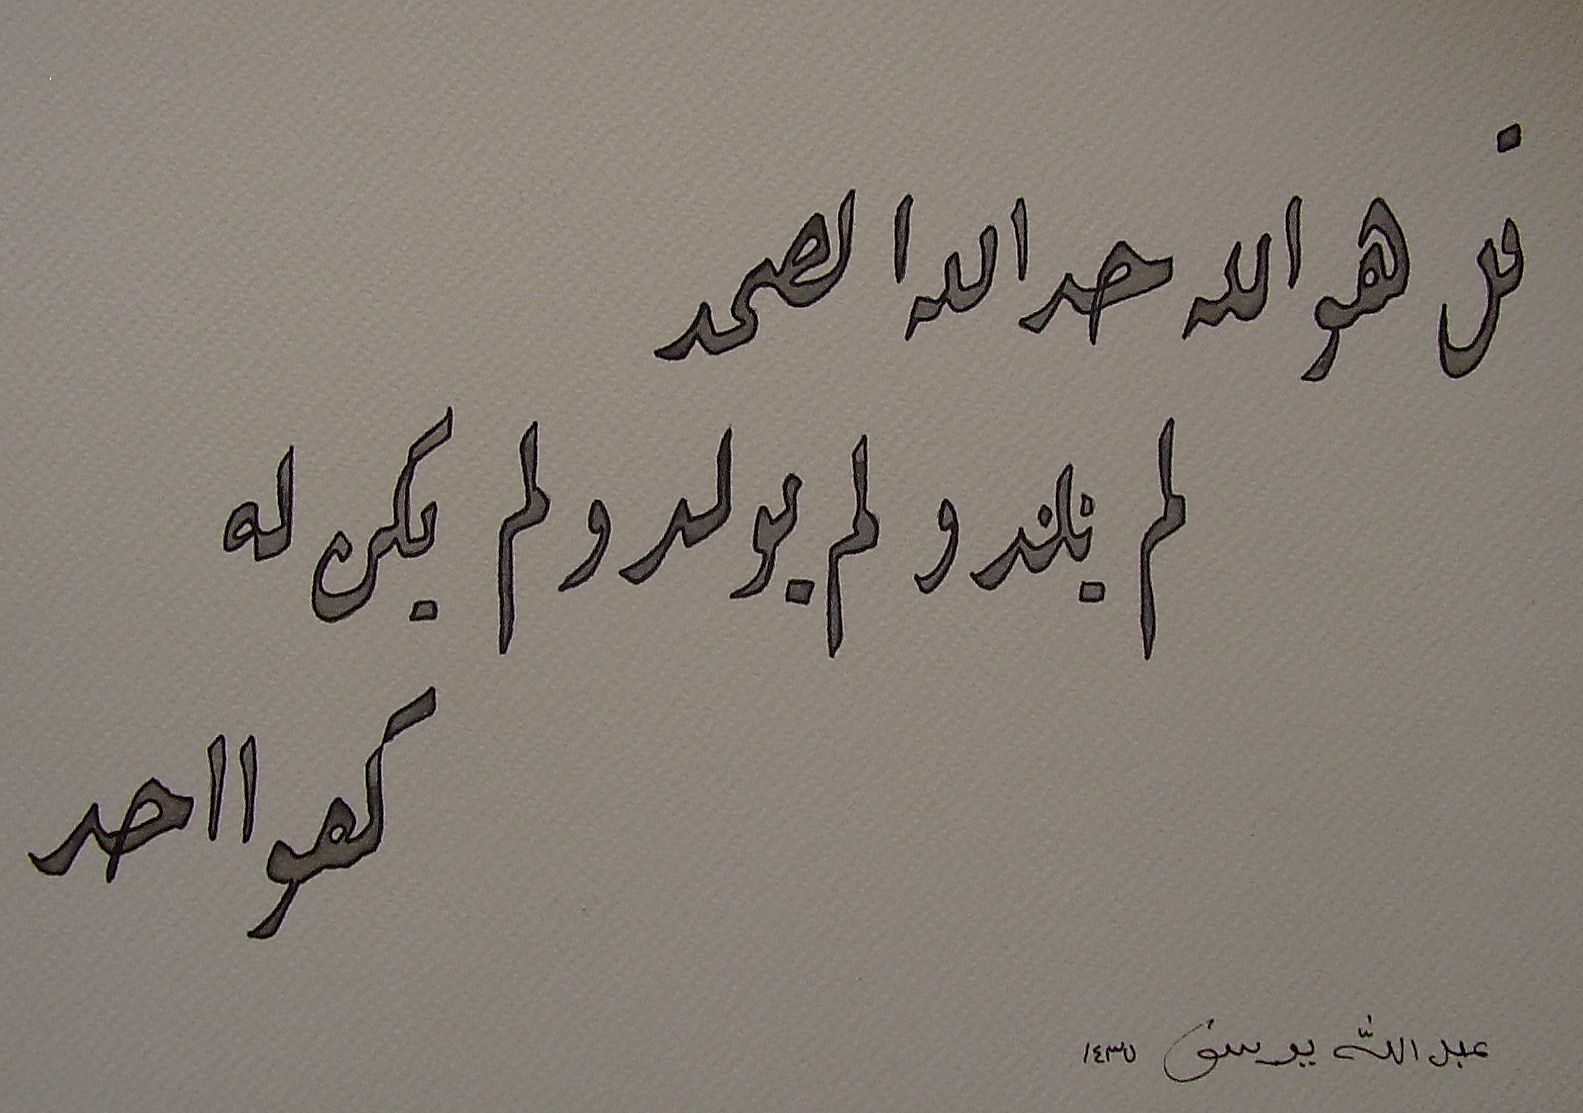 قل هو الله حد الله الصمد
لم يلد و لم يولد و لم يكن له
كفوا احد
عبد الله يوسف ١٤٣٧